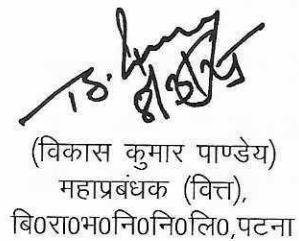 (विकास कुमार पाण्डेय)
महाप्रबंधक (वित्त),
बि0रा0भ0नि0नि0लि0,पटना